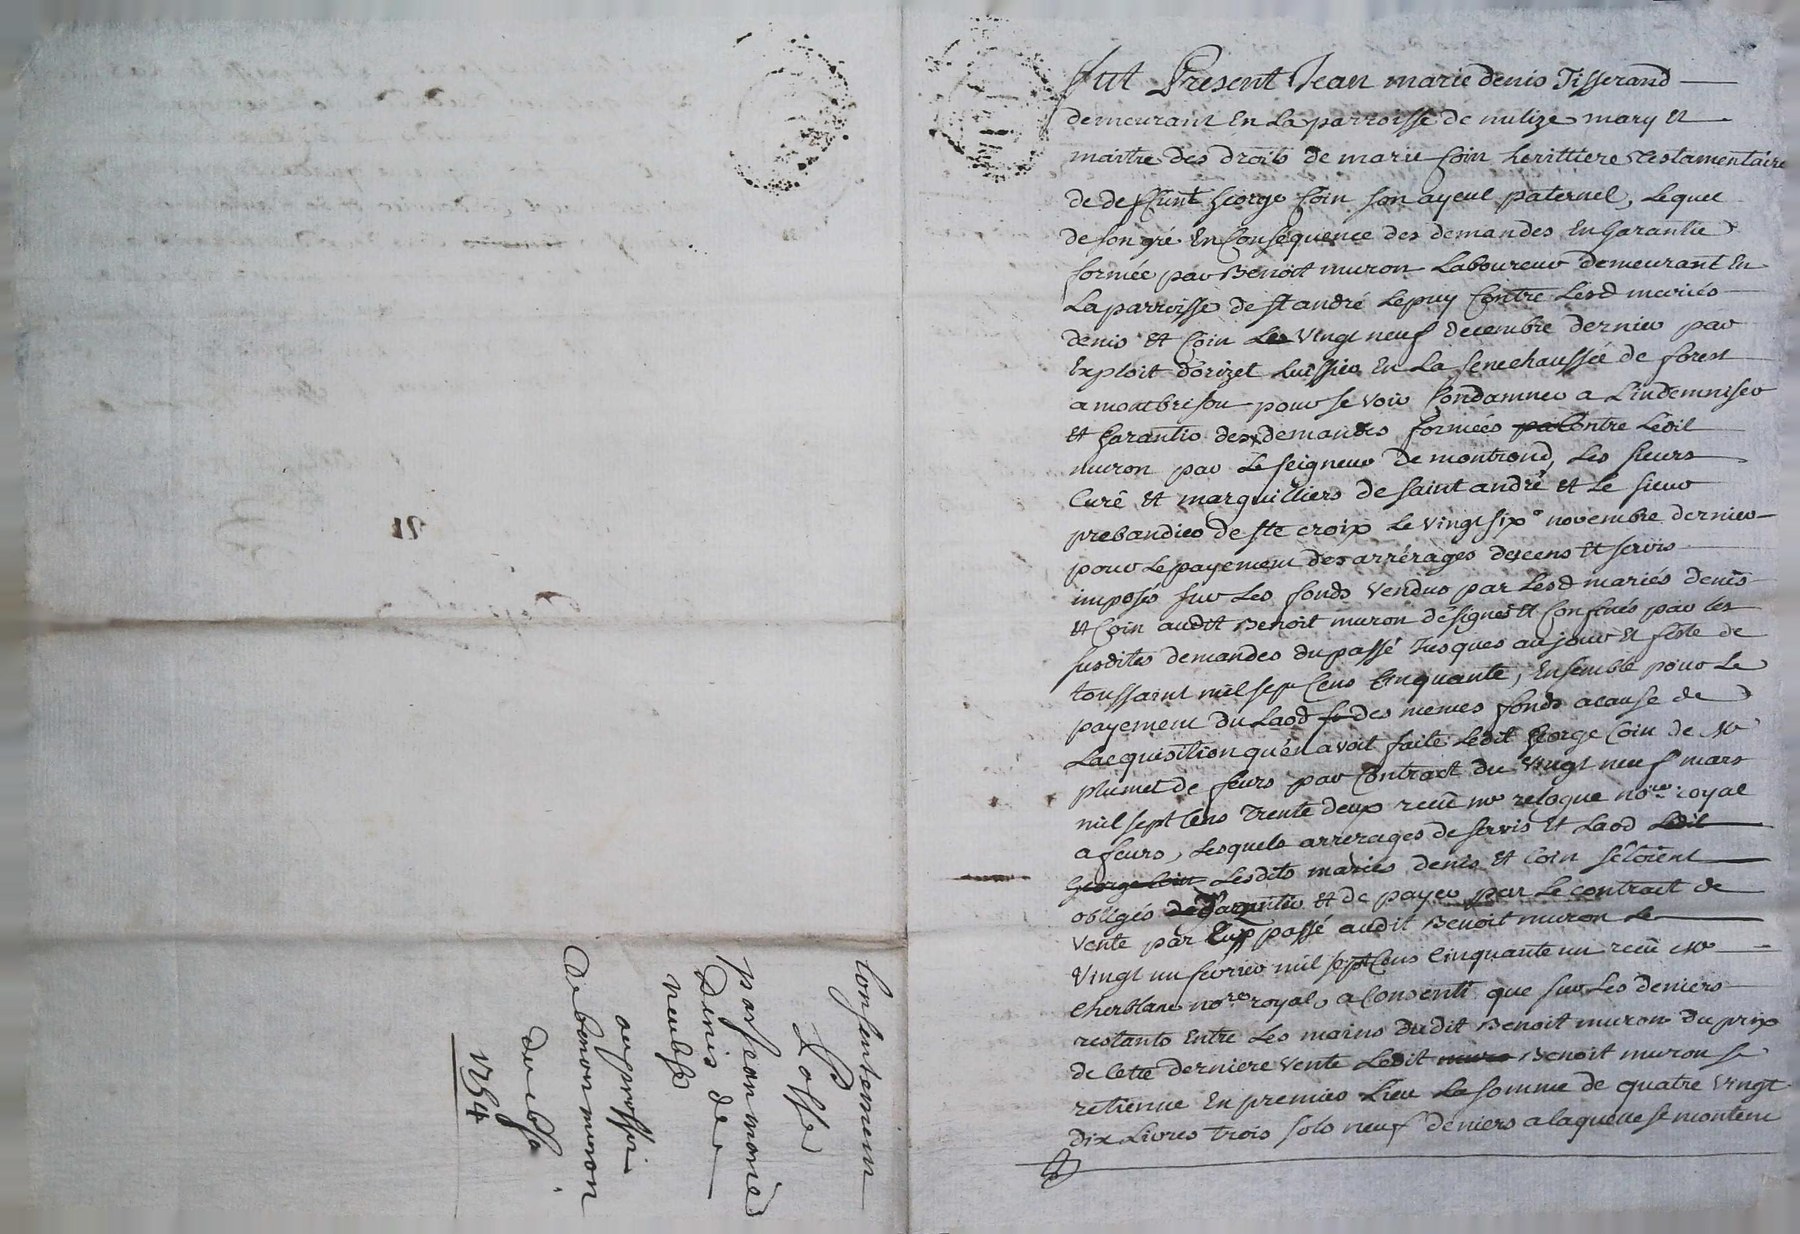 Fut Present Jean marie denis Tisserand
demeurant En La parroisse de nulize mary Et
maitre des droits de marie Coin herittiere Testamentaire
de deffunt George Coin son ayeul paternel, Lequel
de son gré En Conséquence des demandes En Garantie
formée par Benoit muron Laboureur demeurant En
La parroisse de st andré Lepuy Contre Lesd mariés
denis Et Coin Les Vingt neuf decembre dernier par
Exploit d'orizet huissier En La senechaussée de forest
a montbrison pour se voir Condamner a L'indemniser
Et Garantir des demandes formées pa Contre Ledit
muron par Le seigneur de montrond, Les sieurs
Curé Et marguilliers de saint andré Et Le sieur
prebandier de ste croix Le vingt six.e novembre dernier
pour Le payement des arrérages des cens Et servis
imposés sur Les fonds Vendus par Lesd mariés denis
Et Coin audit Benoit muron désignés Et Confinés par Les
susdites demandes du passé Jusques au jour Et feste de
toussaint mil sept Cens Cinquante, Ensemble pour Le
payement du Laod des memes fonds a cause de
L'acquisition qu'en avoit faite Ledit George Coin de Me
plumet de feurs par Contract du Vingt neuf mars
mil sept Cens Trente deux reçû me reloque no.re royal
a feurs, Lesquels arrerages de servis Et Laod Ledit
George Coin Lesdits mariés denis Et Coin s'étoient
obligés de Garantir Et de payer par Le contract de
Vente par Eux passé audit Benoit muron Le
Vingt un fevrier mil sept Cens Cinquante un reçû Me
Cherblanc no.re royal, a Consenti que sur Les deniers
restants Entre Les mains dudit Benoit muron du prix
de Cette derniere Vente Ledit muro Benoit muron se
retienne En premier Lieu La somme de quatre Vingt
dix Livres trois sols neuf deniers a laquelle se montent
Consentemen
Passé
par jean marie
Denis de
neulise
au proffi
De benoi muron
Du
1754